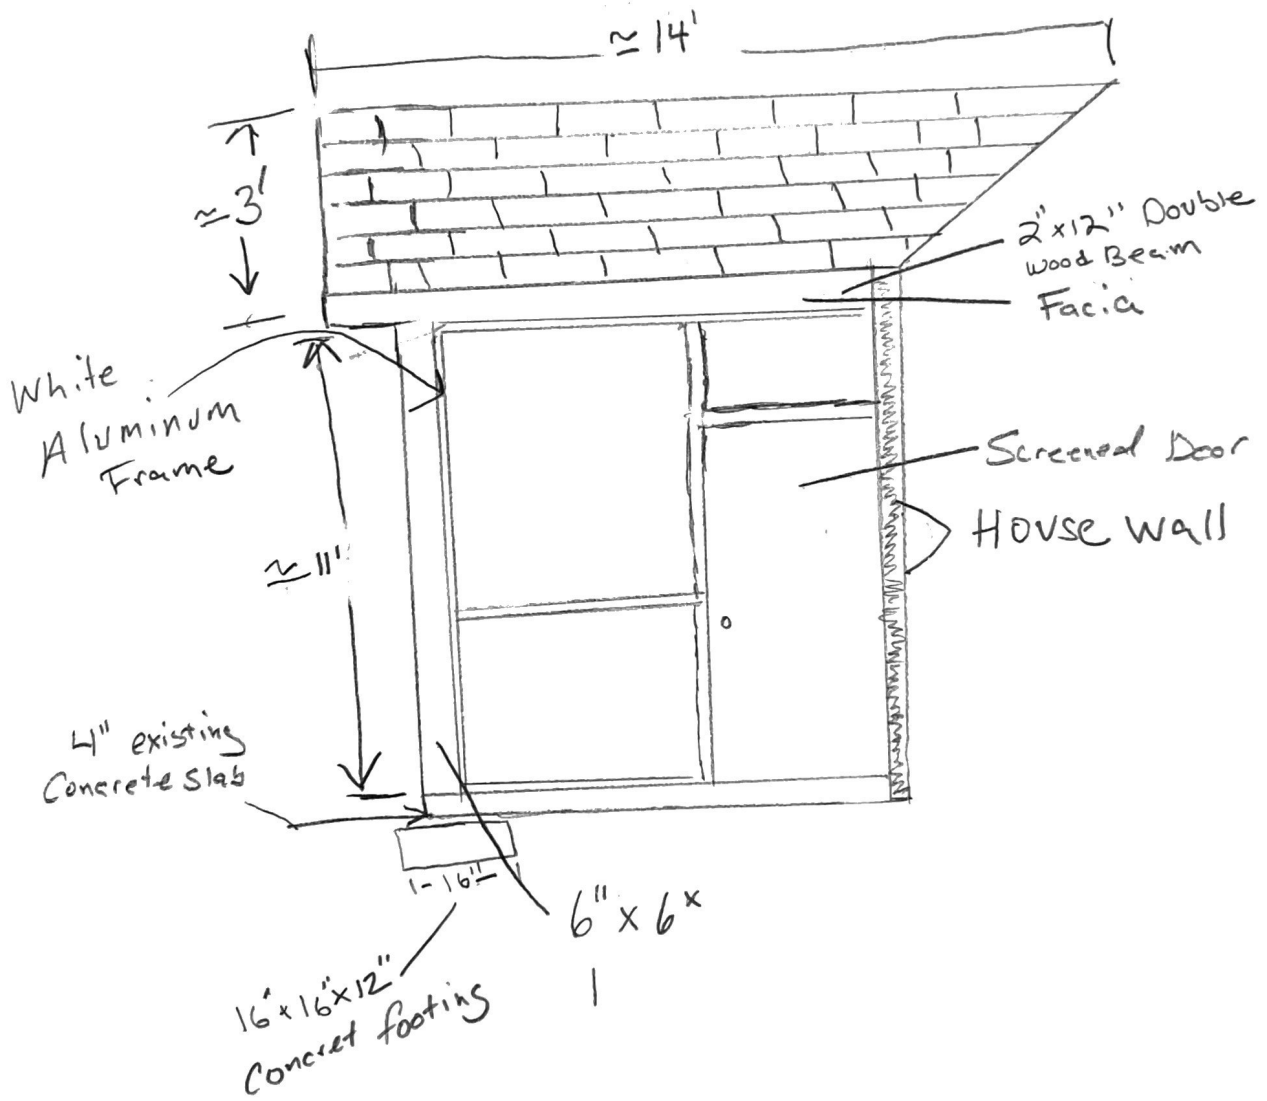 ≃ 14'
≃ 3'
2"x12" Double
wood Beam
Facia
White
Aluminum
Frame
Screened Door
House wall
≃ 11'
4" existing
Concrete Slab
1-16"-1
6" x 6x
16"x16"x12"
Concret footing